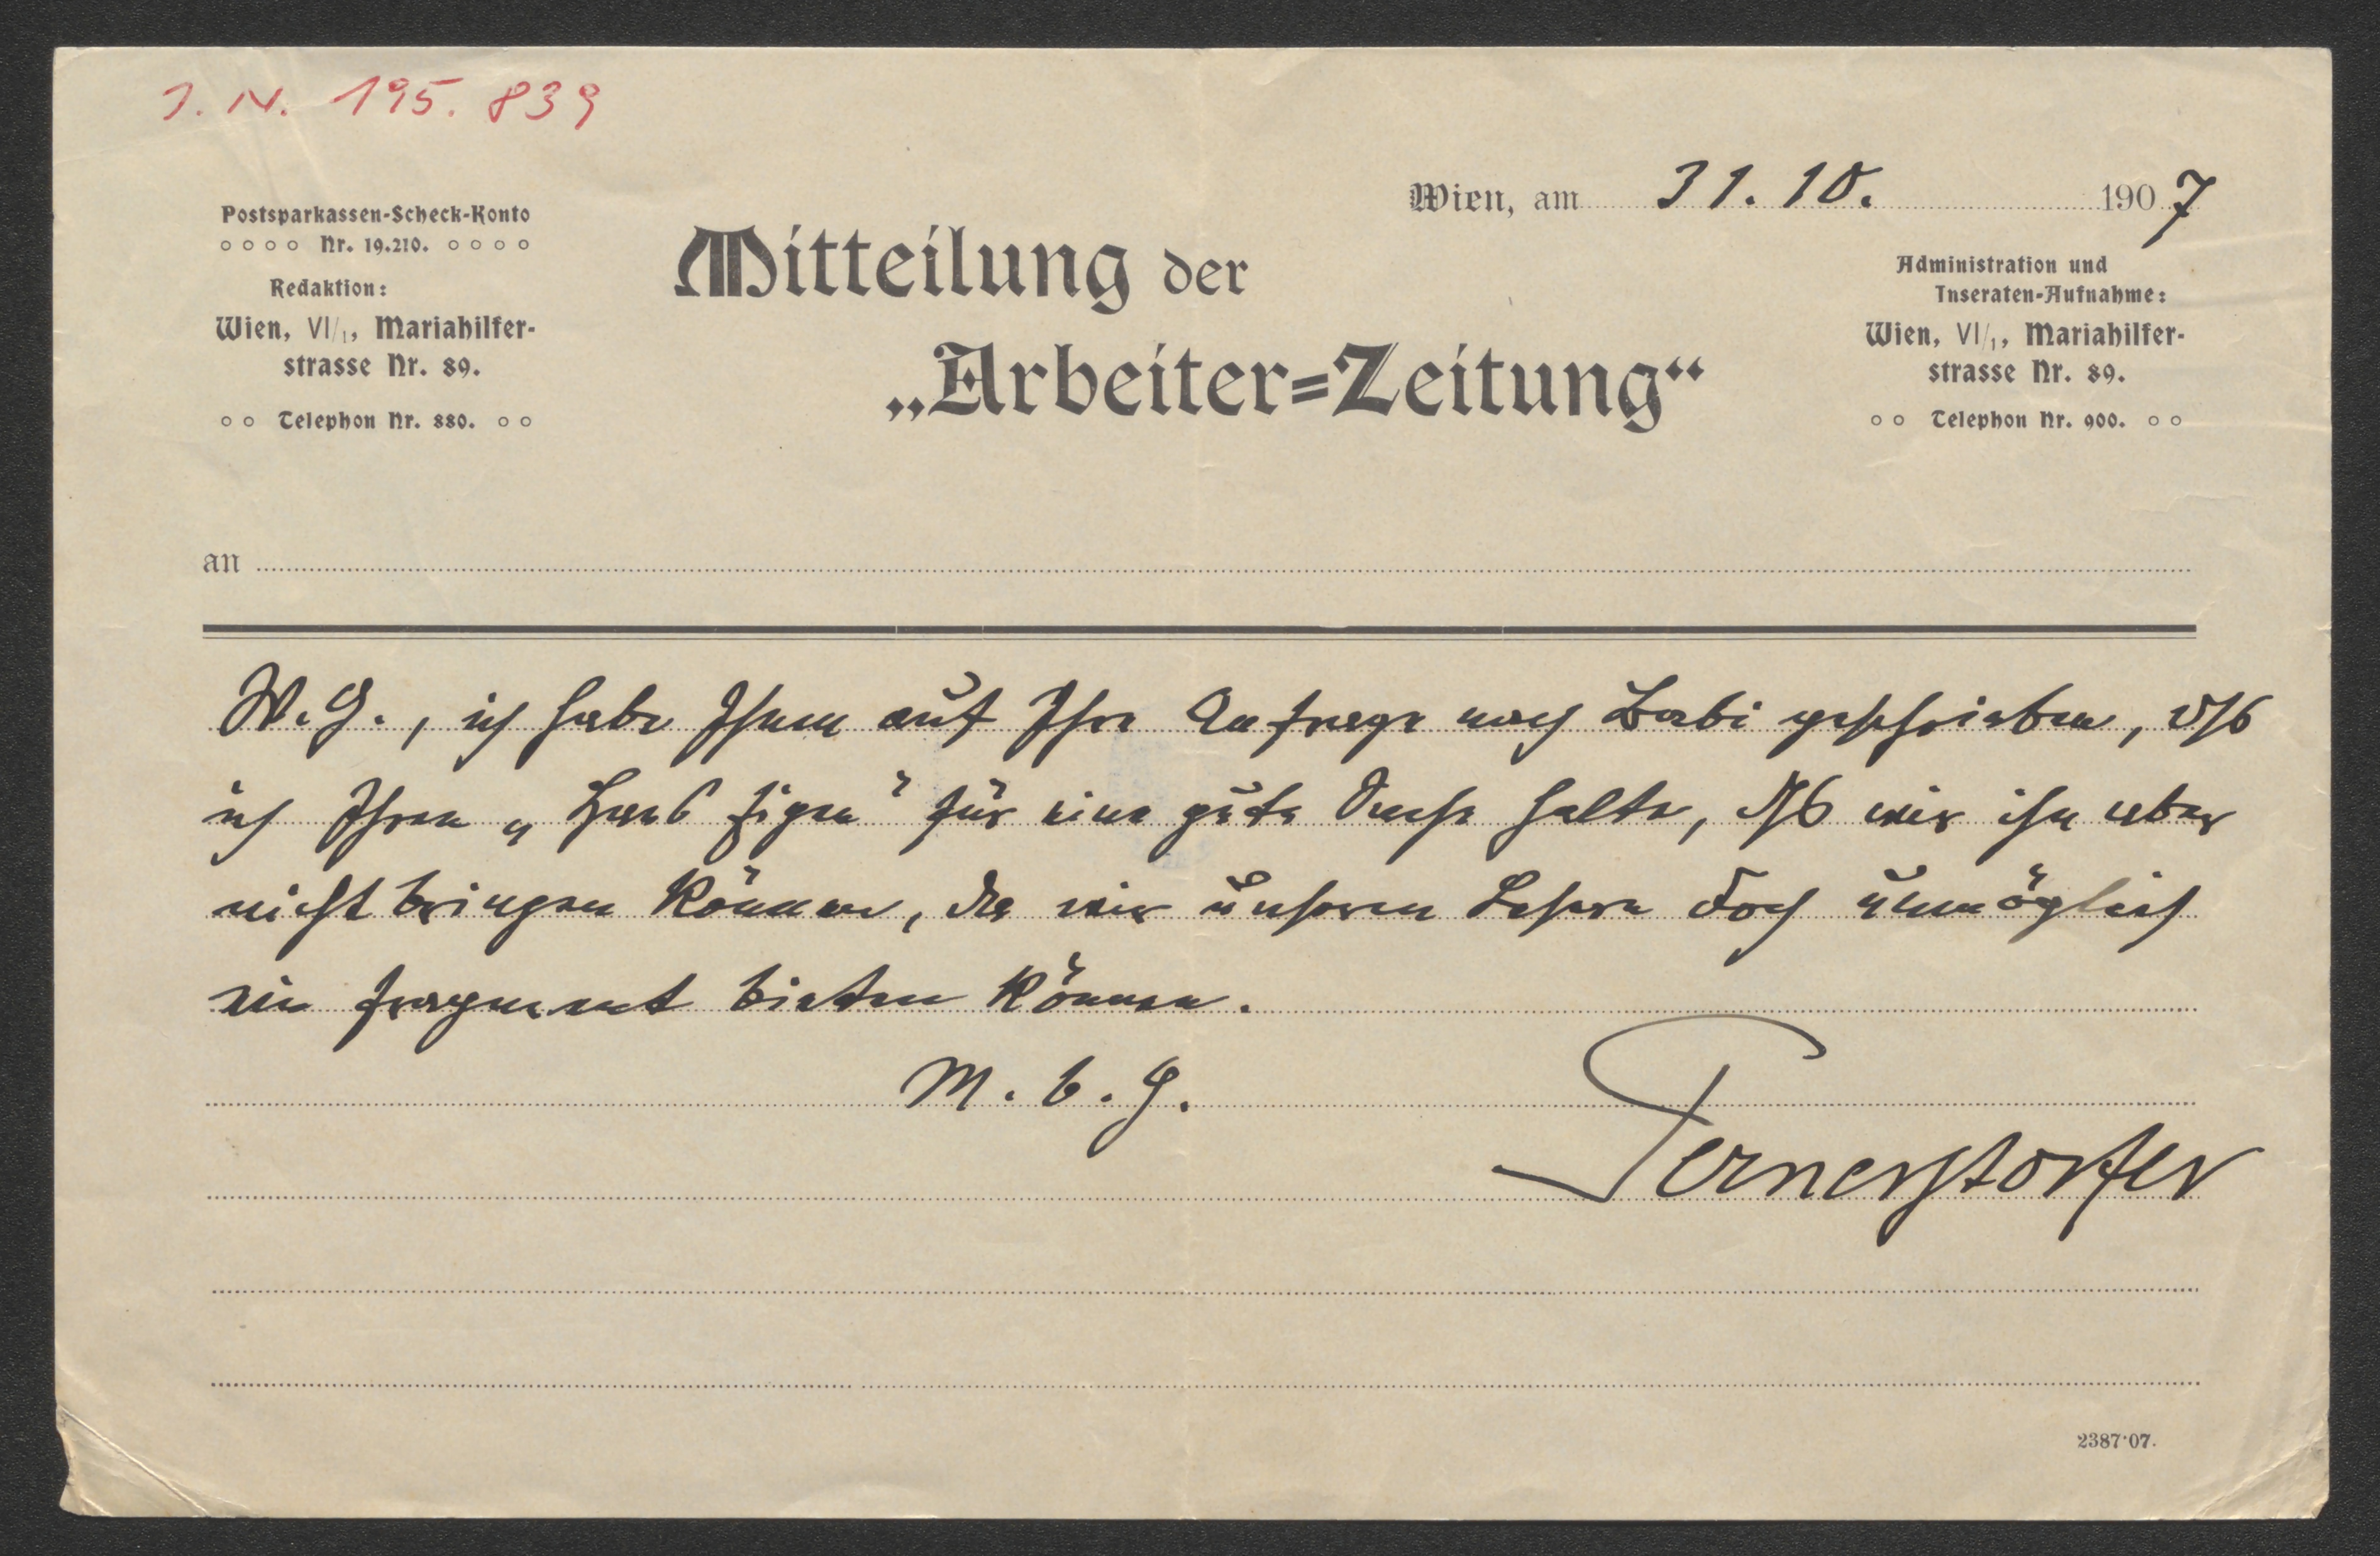 I. N. 195.839
Wien, am 31. 10. 1907
Postsparkassen-Scheck-Konto
Nr. 19.210.
Redaktion:
Wien, VI/1, Mariahilfer-
strasse Nr. 89.
Telephon Nr. 880.
Mitteilung der
„Arbeiter=Zeitung“
Administration und
Inseraten-Aufnahme:
Wien, VI/1, Mariahilfer-
strasse Nr. 89.
Telephon Nr. 900.
an
W. G., ich habe Ihnen auf Ihre Anfrage nach geschrieben, dß
ich Ihren „Hans für eine gute Sache halte, dß wir ihn aber
nicht bringen können, da wir unseren Lesern doch unmöglich
ein Fragment bieten können.
M. b. G.
Pernerstorfer
2387·07.